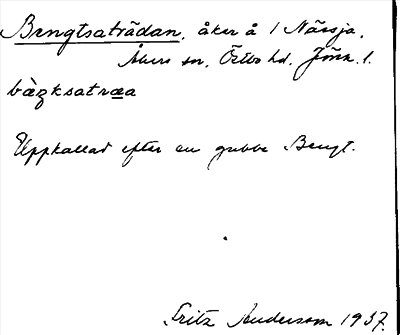 Bengtsaträdan, åker å 1 Nässja,
Åkers sn, Östbo hd, Jönk. l.
bàŋksatræa
Uppkallad efter en gubbe Bengt.
Fritz Andersson 1937.